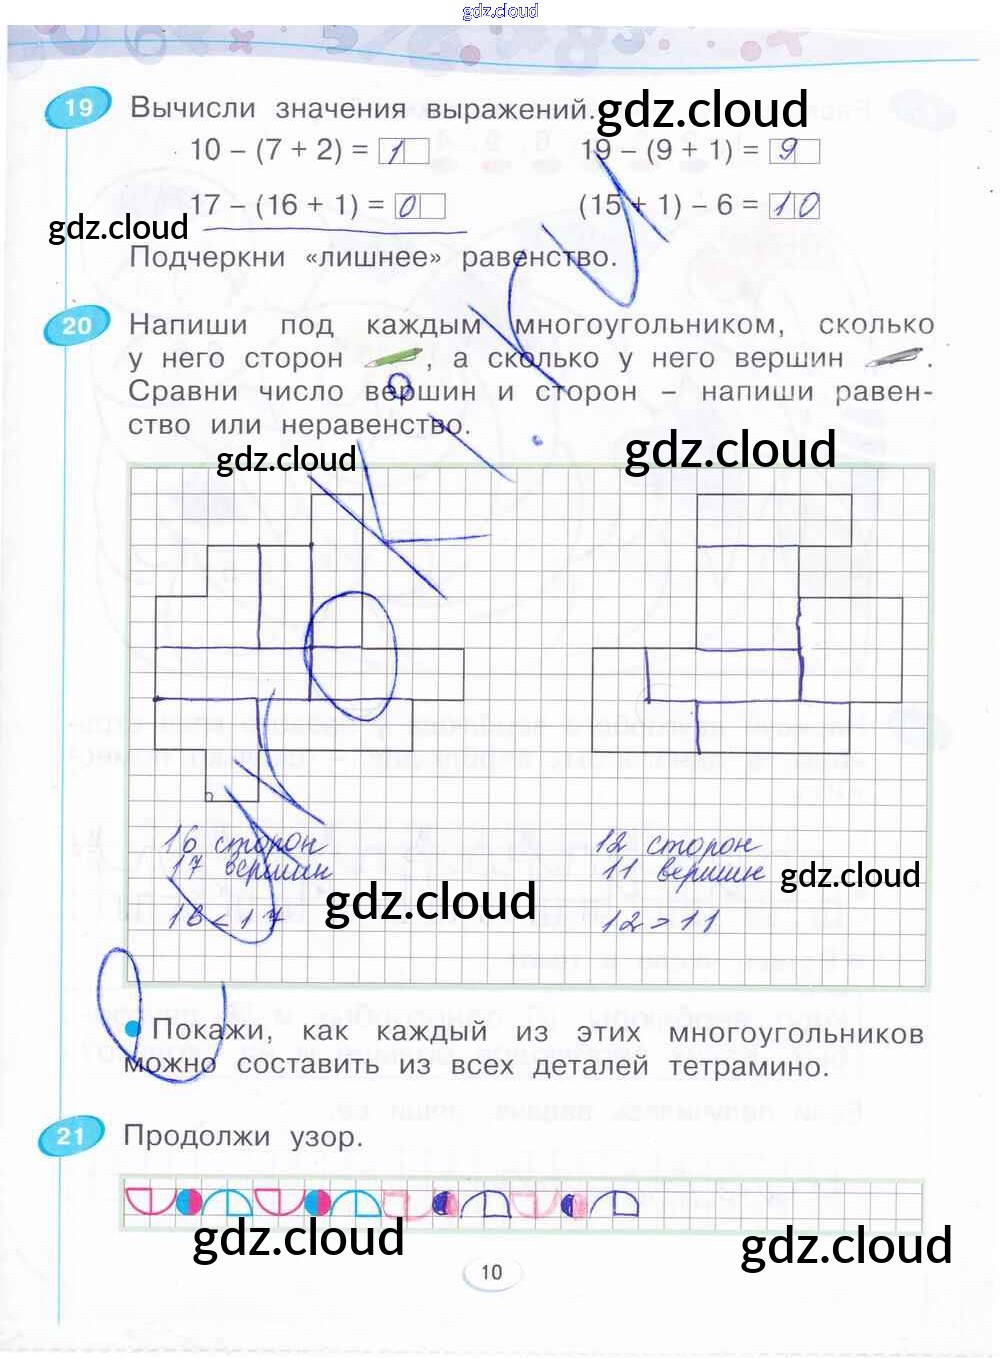 gdz.cloud
19 Вычисли значения выражений.
gdz.cloud
10 – (7 + 2) = 1
19 – (9 + 1) = 9
17 – (16 + 1) = 0
(15 + 1) – 6 = 10
gdz.cloud
Подчеркни «лишнее» равенство.
20 Напиши под каждым многоугольником, сколько
у него сторон , а сколько у него вершин .
Сравни число вершин и сторон – напиши равен-
ство или неравенство.
gdz.cloud
gdz.cloud
16 сторон
17 вершин
16 < 17
12 сторон
11 вершин
12 > 11
gdz.cloud
gdz.cloud
Покажи, как каждый из этих многоугольников
можно составить из всех деталей тетрамино.
21 Продолжи узор.
gdz.cloud
gdz.cloud
10